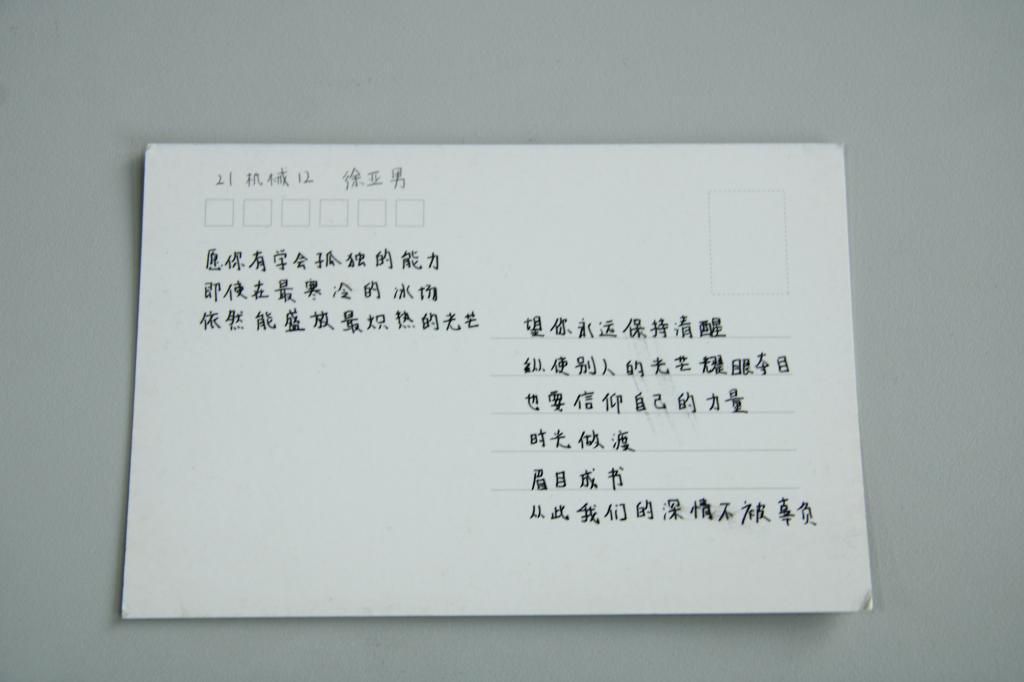 21 机械12 徐亚男
愿你有学会孤独的能力
即使在最寒冷的冰场
依然能盛放最炽热的光芒
望你永远保持清醒
纵使别人的光芒耀眼夺目
也要信仰自己的力量
时光做渡
眉目成书
从此我们的深情不被辜负